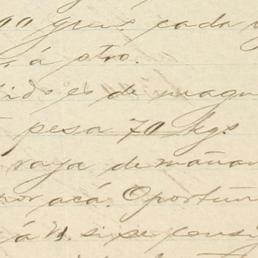 00 gras cada
á otro.
ido es de magn
pesa 70 kgs
raya de mañan
por acá. Oportun
á V. si se consi